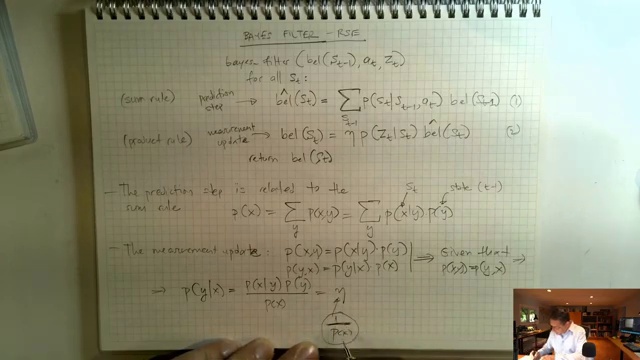 BAYES FILTER - RSE
bayes-filter (bel(S_{t-1}), a_t, Z_t)
for all S_t:
(sum rule) prediction step → bel^(S_t) = ∑_{S_{t-1}} p(S_t|S_{t-1}, a_t) bel(S_{t-1}) (1)
(product rule) measurement update → bel(S_t) = η p(Z_t|S_t) bel^(S_t) (2)
return bel(S_t)
- The prediction step is related to the sum rule
S_t state (t-1)
p(x) = ∑_y p(x,y) = ∑_y p(x|y) p(y)
- The measurement update: p(x,y) = p(x|y) · p(y)
p(y,x) = p(y|x) p(x)
⟹ Given that p(x,y) = p(y,x) ⟹
⟹ p(y|x) = p(x|y) p(y) / p(x) = η
1 / p(x)